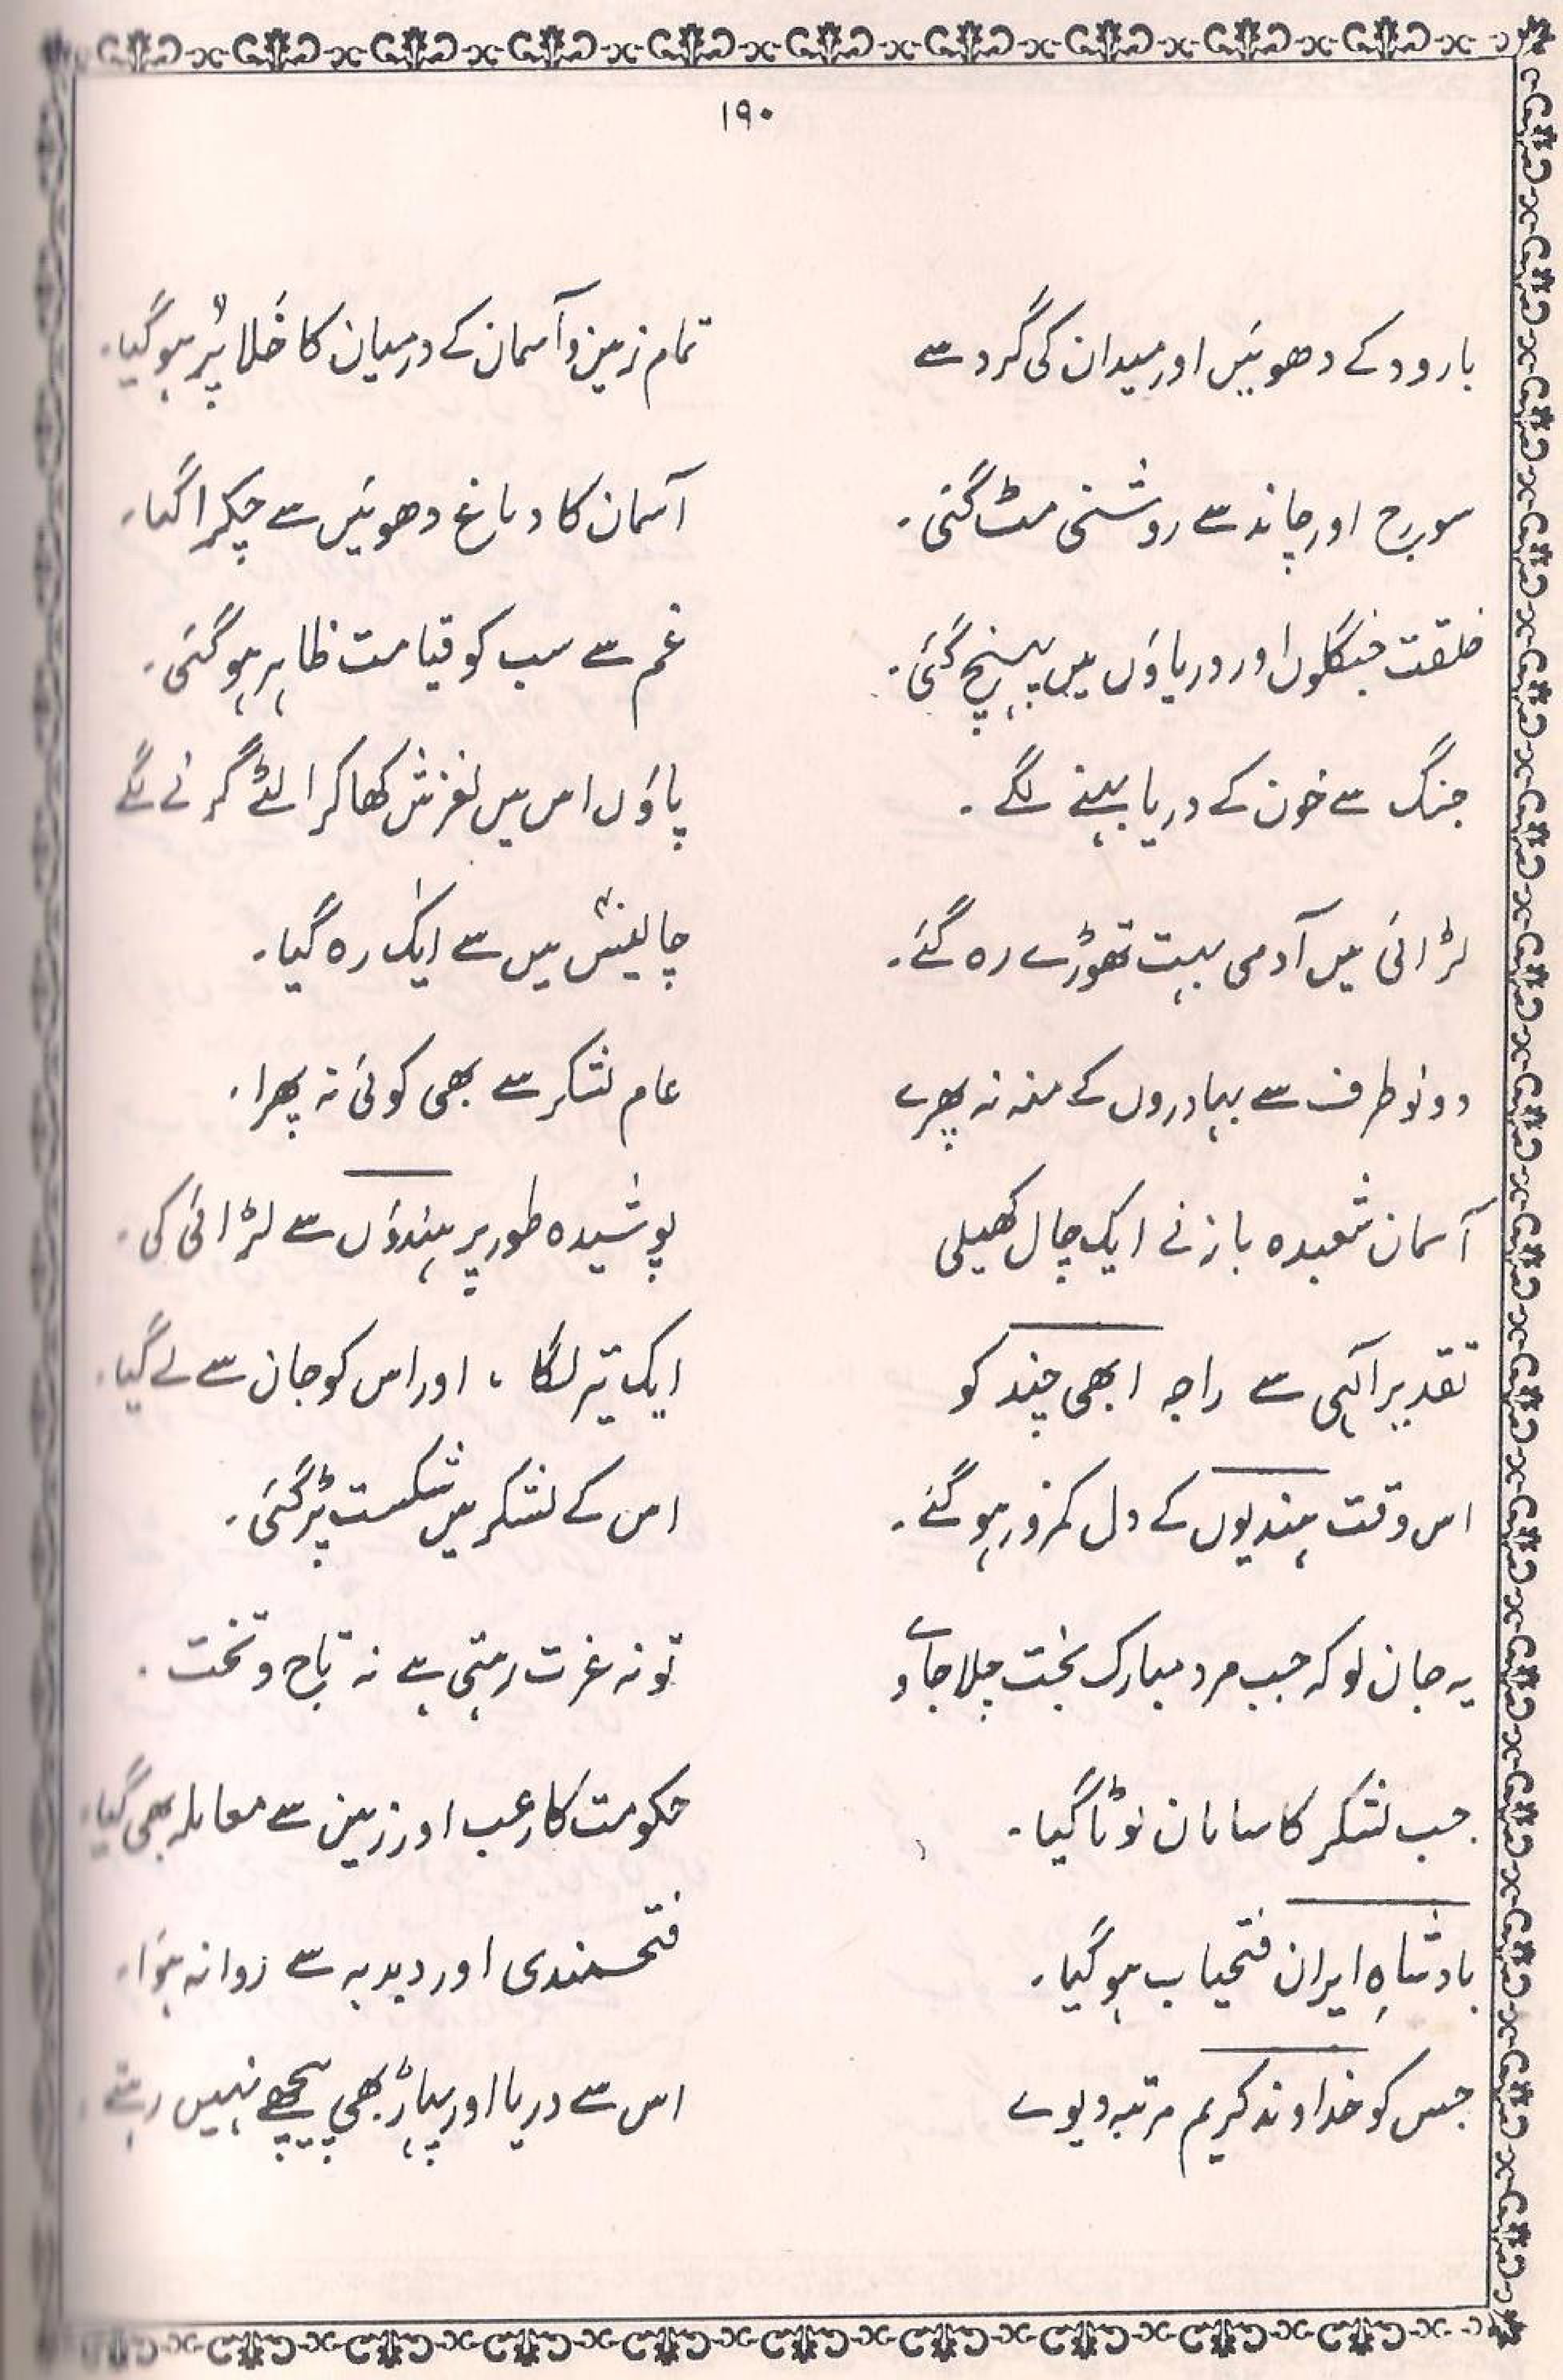 ۱۹۰
بارود کے دھوئیں اور میدان کی گرد سے تمام زمین و آسمان کے درمیان کا خلا پُر ہو گیا۔
سورج اور چاند سے روشنی مٹ گئی۔ آسمان کا دماغ دھوئیں سے چکرا گیا۔
خلقت جنگلوں اور دریاؤں میں پہنچ گئی۔ غم سے سب کو قیامت ظاہر ہو گئی۔
جنگ سے خون کے دریا بہنے لگے۔ پاؤں اس میں لغزش کھا کر الٹے گرنے لگے
لڑائی میں آدمی بہت تھوڑے رہ گئے۔ چالیس میں سے ایک رہ گیا۔
دونو طرف سے بہادروں کے منہ نہ پھرے عام لشکر سے بھی کوئی نہ پھرا۔
آسمان شعبدہ باز نے ایک چال کھیلی پوشیدہ طور پر ہندوؤں سے لڑائی کی۔
تقدیر الٰہی سے راجہ ابھی چند کو ایک تیر لگا، اور اس کو جان سے لے گیا۔
اس وقت ہندیوں کے دل کمزور ہو گئے۔ اس کے لشکر میں شکست پڑ گئی۔
یہ جان لو کہ جب مرد مبارک بخت چلا جاوے تو نہ عزت رہتی ہے نہ تاج و تخت۔
جب لشکر کا سامان لوٹا گیا۔ حکومت کا رعب اور زمین سے معاملہ بھی گیا۔
بادشاہِ ایران فتحیاب ہو گیا۔ فتحمندی اور دبدبہ سے روانہ ہؤا۔
جس کو خداوند کریم مرتبہ دیوے اس سے دریا اور پہاڑ بھی پیچھے نہیں رہتے۔